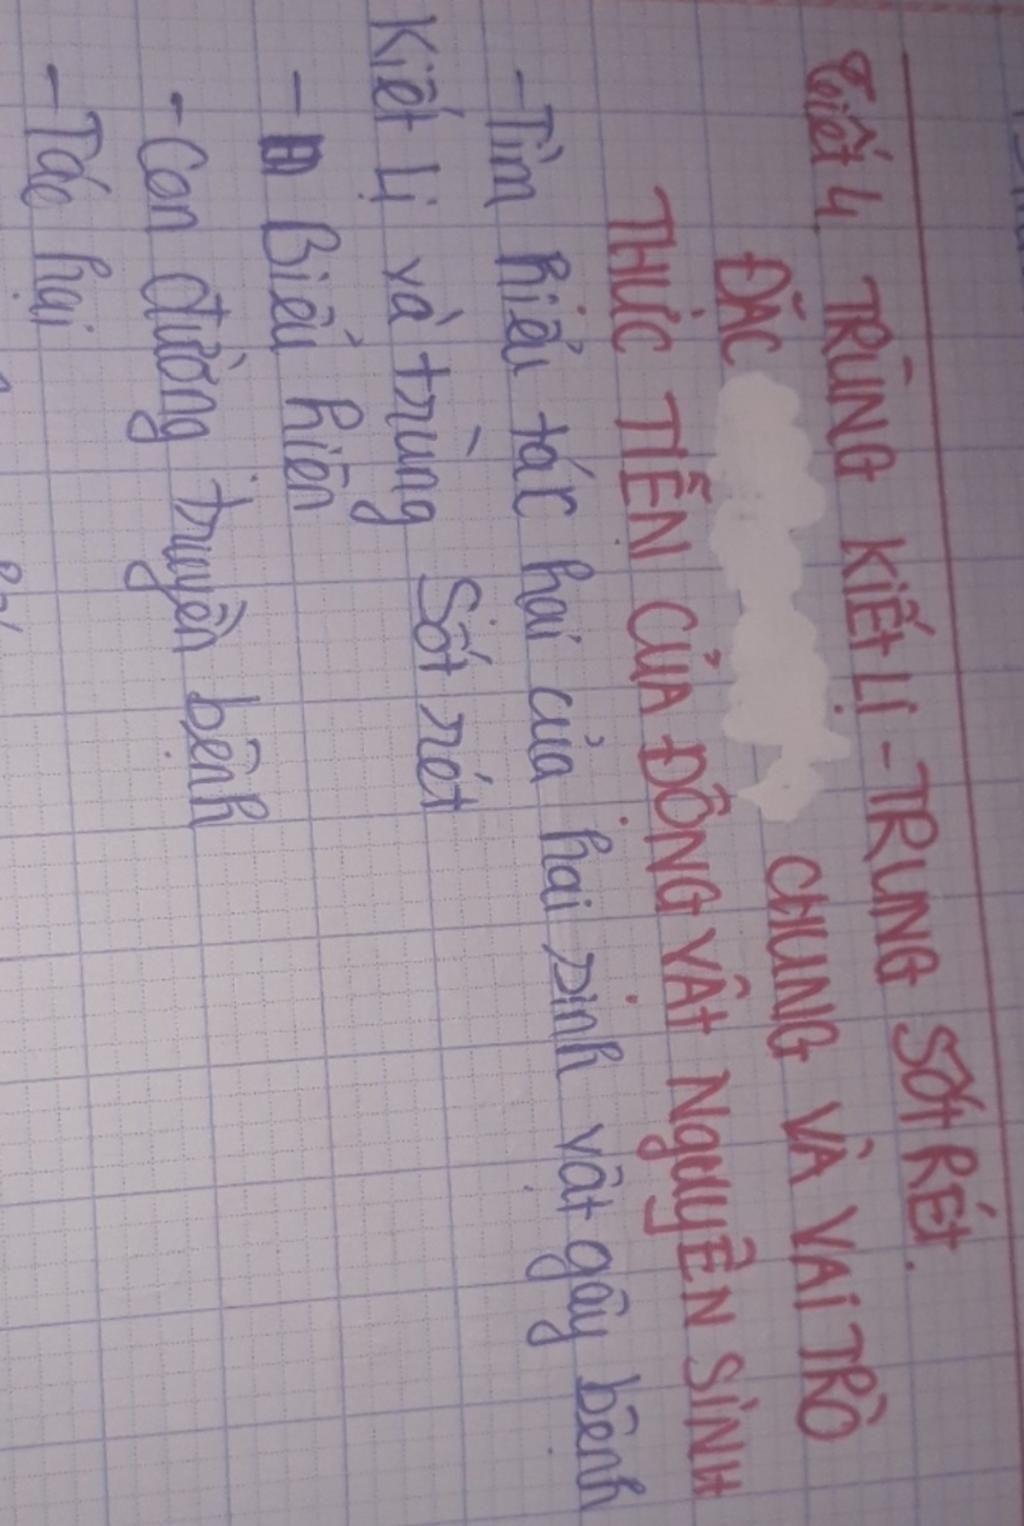 Tiết 4 TRÙNG KIẾT LỊ - TRÙNG SỐT RÉT.
ĐẶC CHUNG VÀ VAI TRÒ
THỰC TIỄN CỦA ĐỘNG VẬT NGUYÊN SINH
- Tìm hiểu tác hại của hai sinh vật gây bệnh
Kiết Lị và trùng Sốt rét
- Biểu hiện
- Con đường truyền bệnh
- Tác hại